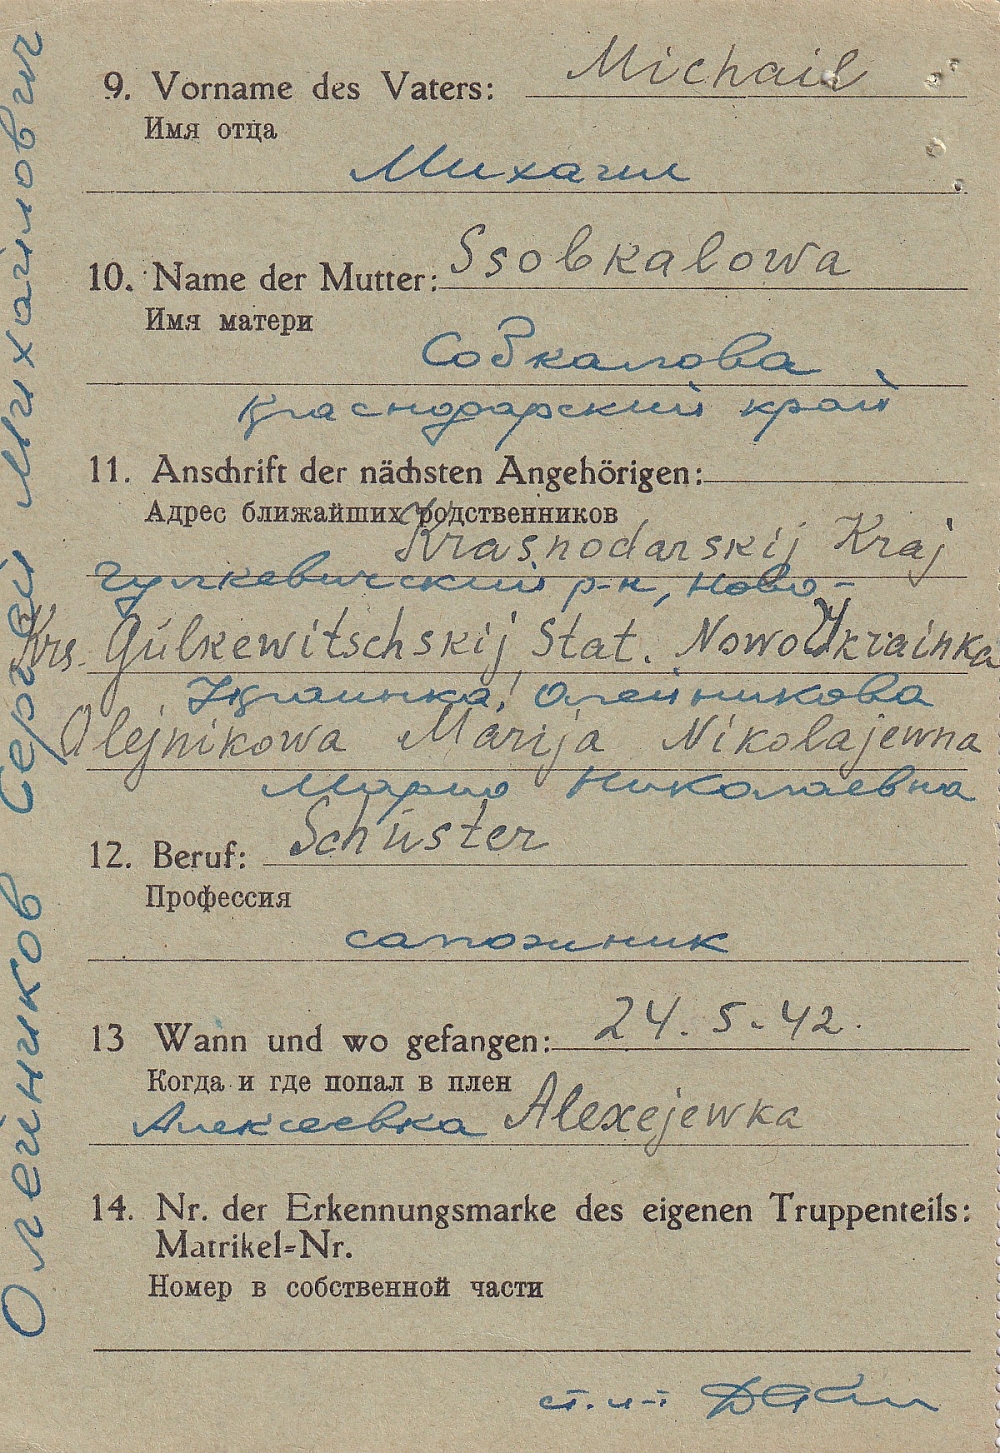 Олейников Сергей Михайлович
9. Vorname des Vaters: Michail
Имя отца
Михаил
10. Name der Mutter: Ssobkalowa
Имя матери
Собкалова
Краснодарский край
11. Anschrift der nächsten Angehörigen:
Адрес ближайших родственников
Krasnodarskij Kraj
Гулкевичский р-н, Ново-
Krs. Gulkewitschskij Stat. NowoUkrainka
Украинка, Олейникова
Olejnikowa Marija Nikolajewna
Мария Николаевна
12. Beruf: Schuster
Профессия
сапожник
13 Wann und wo gefangen: 24.5.42.
Когда и где попал в плен
Алексеевка Alexejewka
14. Nr. der Erkennungsmarke des eigenen Truppenteils:
Matrikel=Nr.
Номер в собственной части
ст. л-т